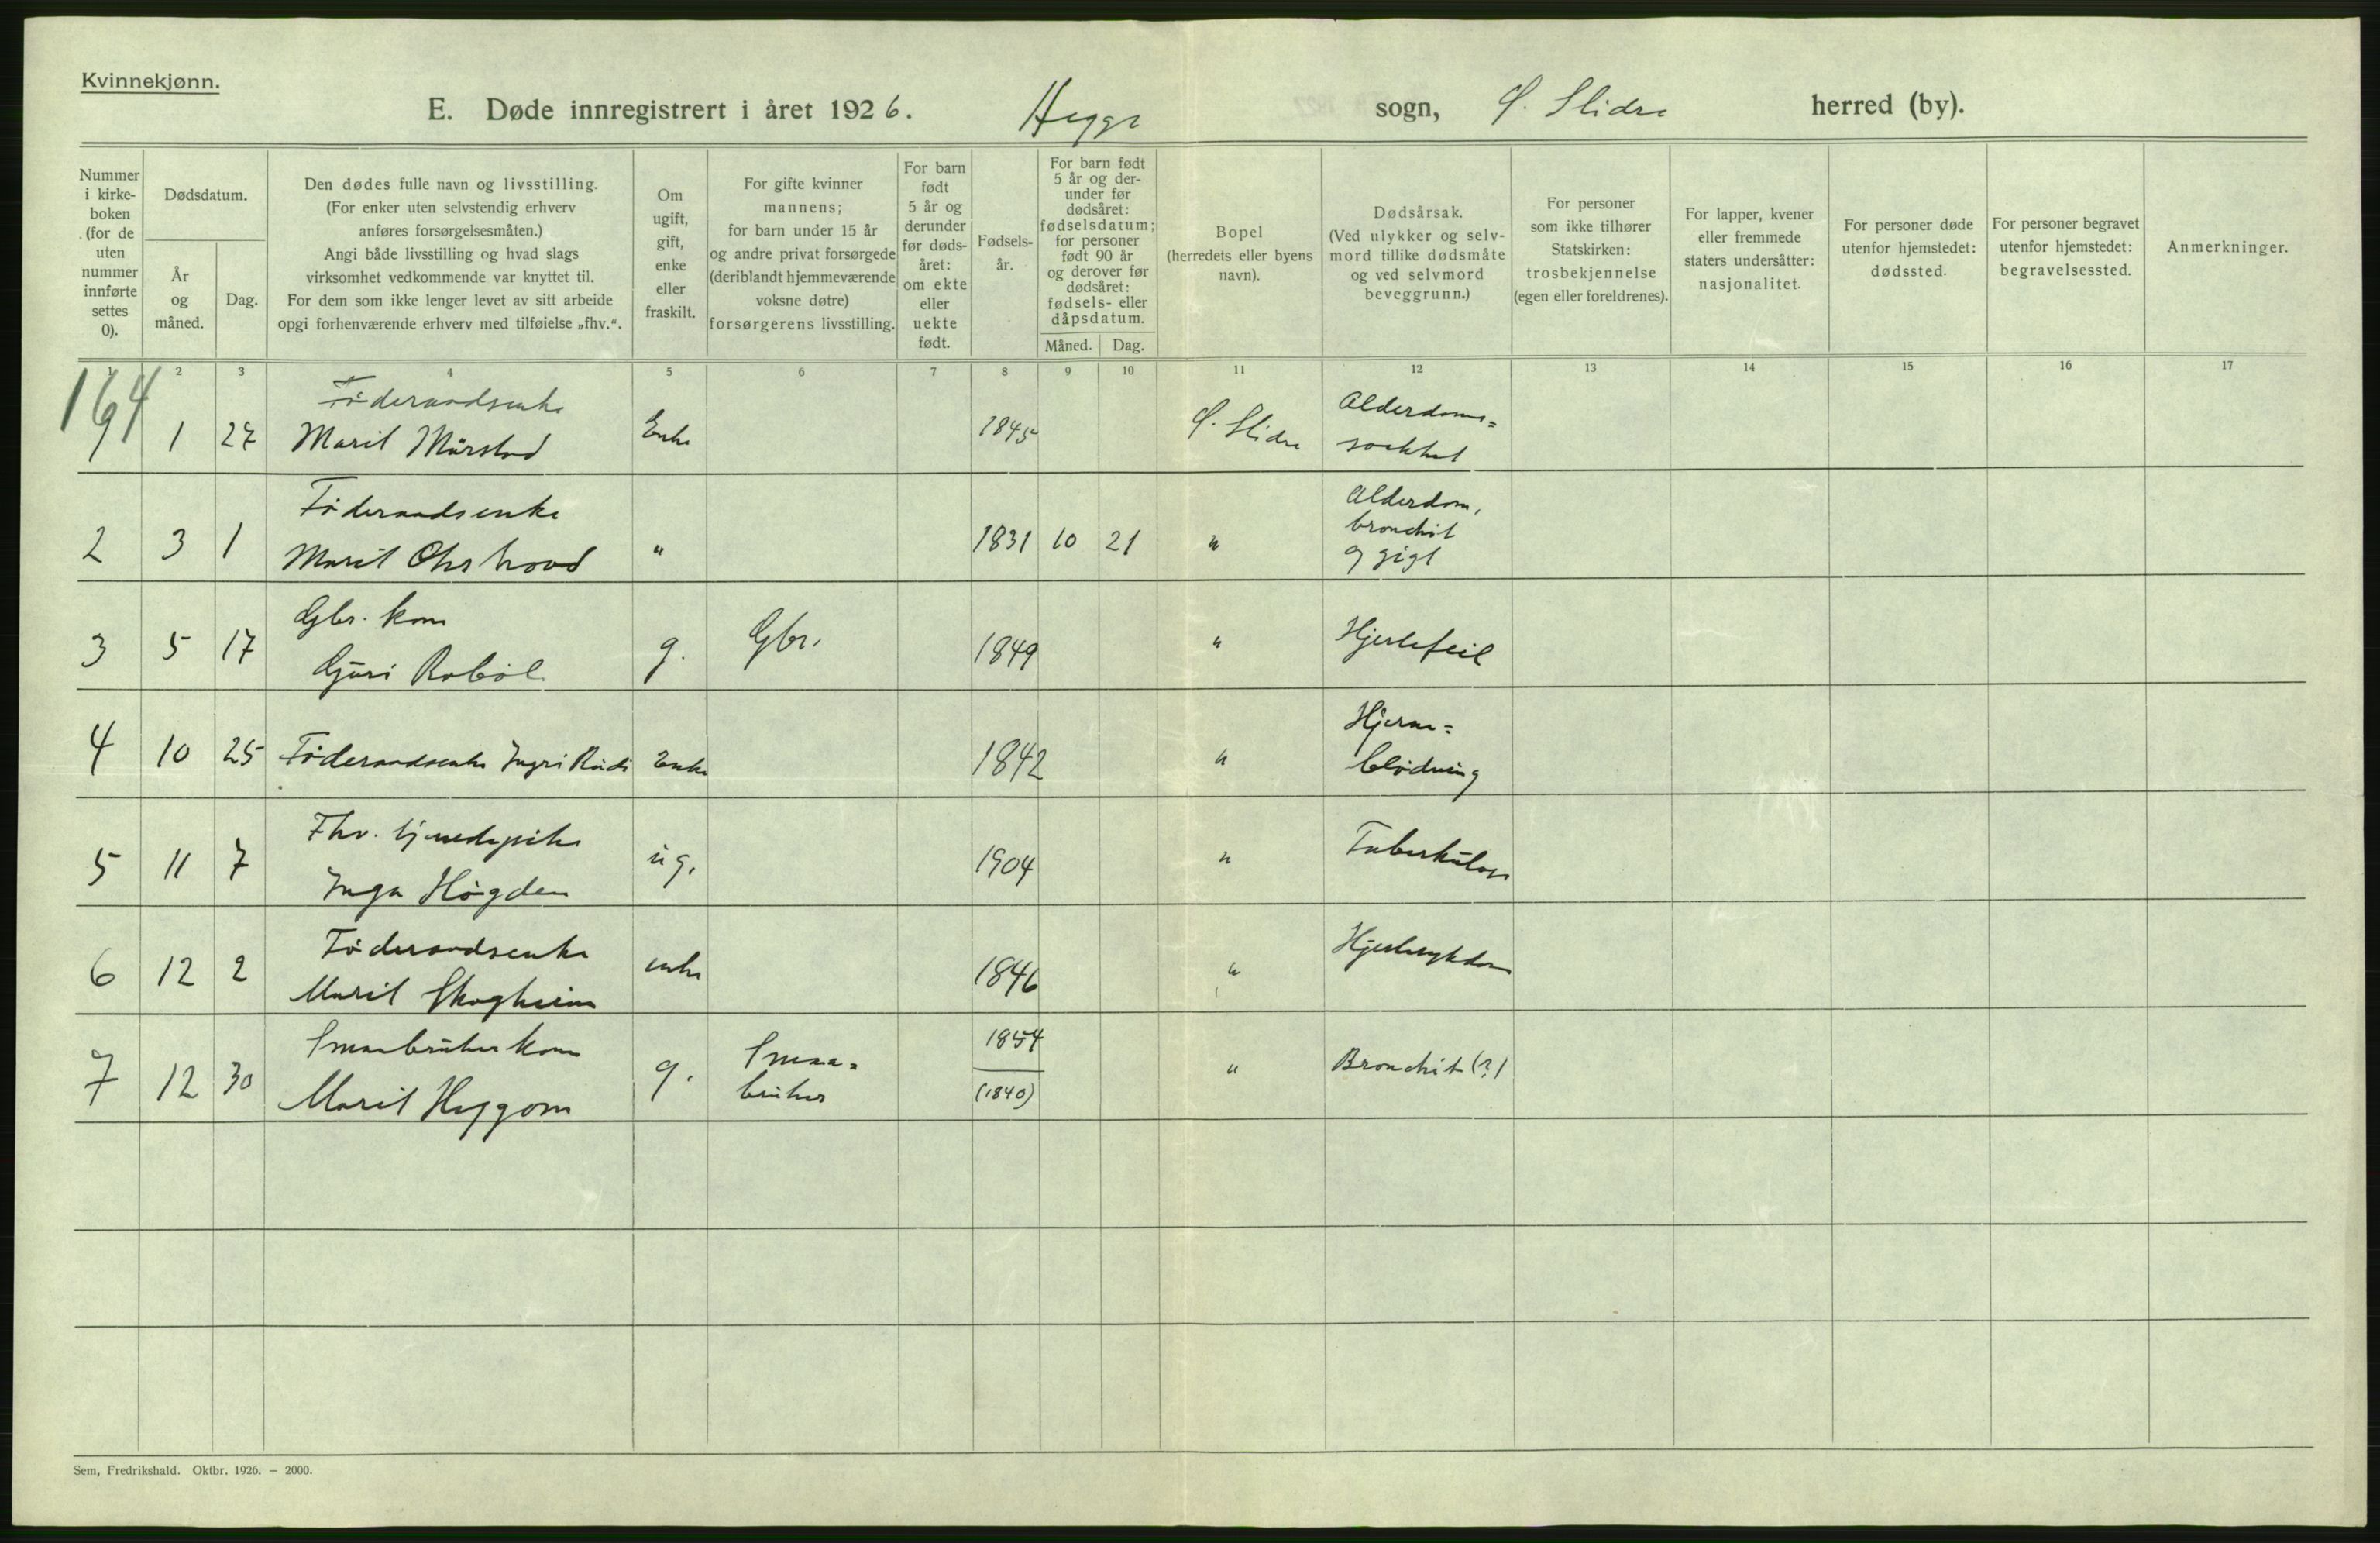 Kvinnekjønn.
E. Døde innregistrert i året 1926. Hegge sogn, Ø. Slidre herred (by).
Nummer i kirke-boken (for de uten nummer innførte settes 0).
Dødsdatum.
År og måned.
Dag.
Den dødes fulle navn og livsstilling.
(For enker uten selvstendig erhverv
anføres forsørgelsesmåten.)
Angi både livsstilling og hvad slags
virksomhet vedkommende var knyttet til.
For dem som ikke lenger levet av sitt arbeide
opgi forhenværende erhverv med tilføielse „fhv.“.
Om
ugift,
gift,
enke
eller
fraskilt.
For gifte kvinner
mannens;
for barn under 15 år
og andre privat forsørgede
(deriblandt hjemmeværende
voksne døtre)
forsørgerens livsstilling.
For barn
født
5 år og
derunder
før døds-
året:
om ekte
eller
uekte
født.
Fødsels-
år.
For barn født
5 år og der-
under før
dødsåret:
fødselsdatum;
for personer
født 90 år
og derover før
dødsåret:
fødsels- eller
dåpsdatum.
Måned. Dag.
Bopel
(herredets eller byens
navn).
Dødsårsak.
(Ved ulykker og selv-
mord tillike dødsmåte
og ved selvmord
beveggrunn.)
For personer
som ikke tilhører
Statskirken:
trosbekjennelse
(egen eller foreldrenes).
For lapper, kvener
eller fremmede
staters undersåtter:
nasjonalitet.
For personer døde
utenfor hjemstedet:
dødssted.
For personer begravet
utenfor hjemstedet:
begravelsessted.
Anmerkninger.
1 2 3 4 5 6 7 8 9 10 11 12 13 14 15 16 17
164
Föderaadsenke Alderdoms=
1 1 27 Marit Mürstad Enke 1845 Ø. Slidre
Föderaadsenke Alderdom,
bronchit
2 3 1 Marit " 1831 10 21 " og gigt
Gbr. kone
3 5 17 Güri Robøl g. Gbr. 1849 " Hjertefeil
Hjerne=
4 10 25 Föderaadsenke Ingri Rudi Enke 1842 " blødning
Fhv. tjenestepike
5 11 7 Inga Høgden üg. 1904 " Tuberkülose
Föderaadsenke
6 12 2 Marit Skogheim enke 1846 " Hjertesykdom
Smaabrüker kone Smaa= 1854
7 12 30 Marit Heggom g. brüker (1840) " Bronchit (?)
Sem, Fredrikshald. Oktbr. 1926. – 2000.